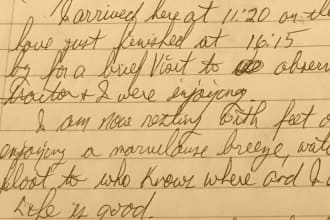 I arrived here at 11:20 on the
have just finished at 16:15
by for a brief visit to observ
tractor & I were enjoying
I am now resting with feet o
enjoying a marvelouse breeze, wat
float to who knows where and I a
Life is good.